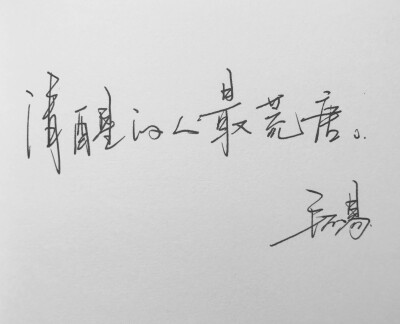 清醒的人最荒唐。